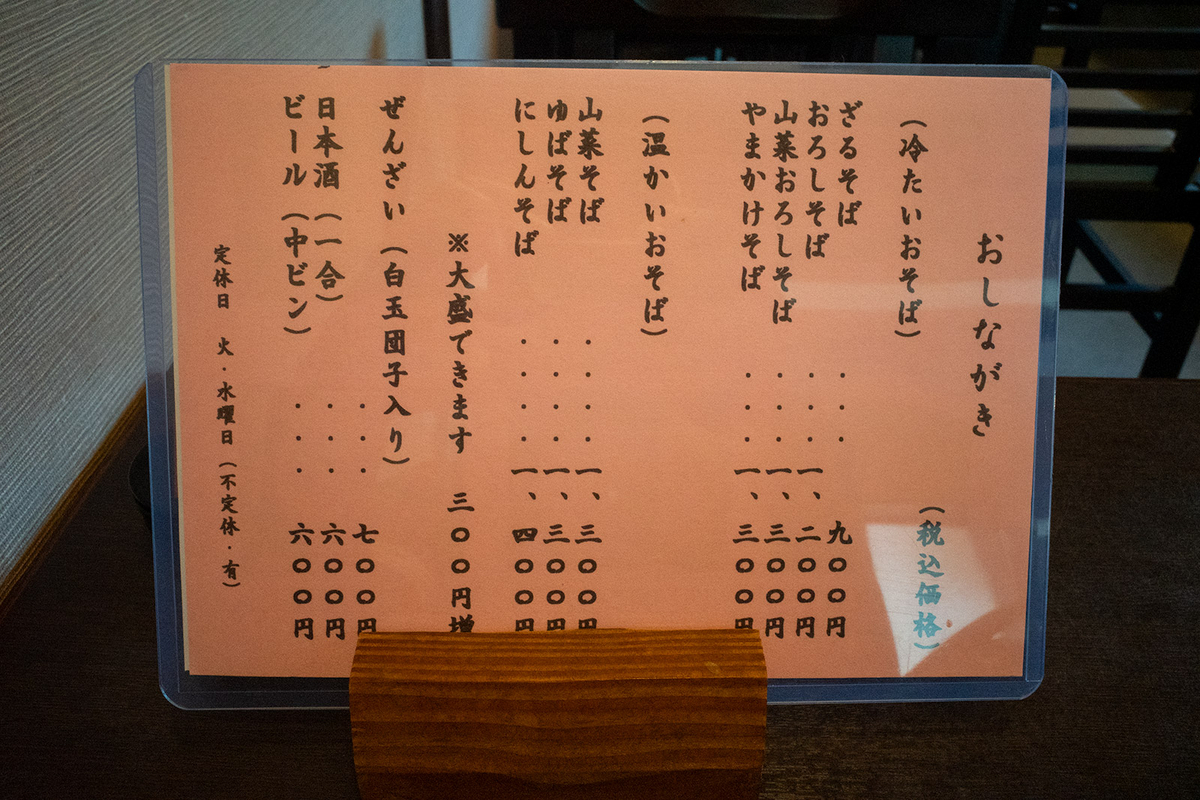 おしながき
(税込価格)
(冷たいおそば)
ざるそば ・・・ 九〇〇円
おろしそば ・・・ 一、二〇〇円
山菜おろしそば ・・・ 一、三〇〇円
やまかけそば ・・・ 一、三〇〇円
(温かいおそば)
山菜そば ・・・・ 一、三〇〇円
ゆばそば ・・・・ 一、三〇〇円
にしんそば ・・・・ 一、四〇〇円
※大盛できます 三〇〇円増
ぜんざい (白玉団子入り) ・・・ 七〇〇円
日本酒 (一合) ・・・ 六〇〇円
ビール (中ビン) ・・・ 六〇〇円
定休日 火・水曜日 (不定休・有)